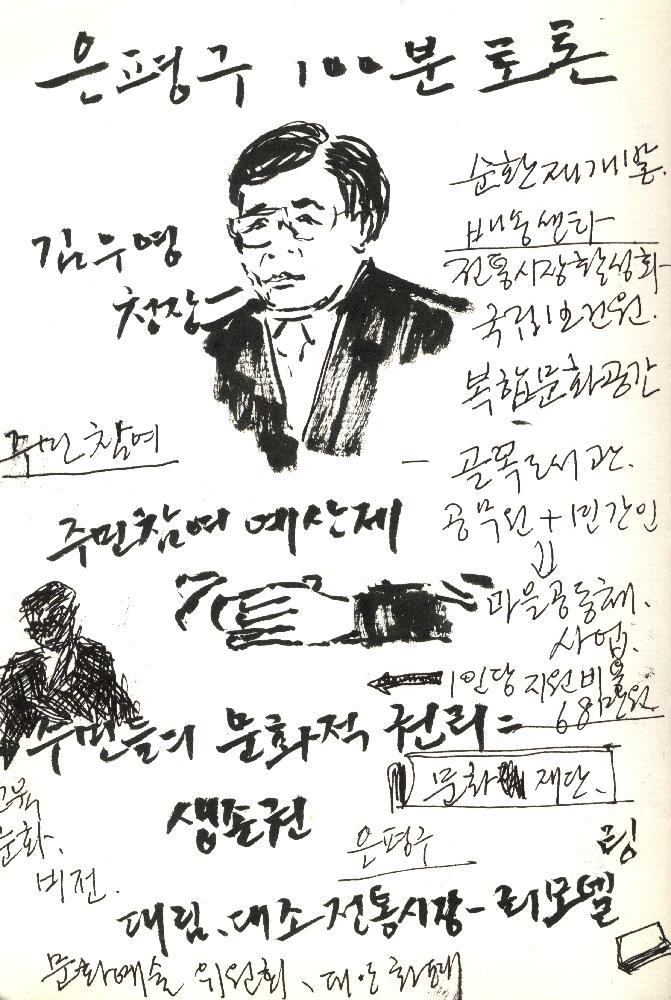 은평구 100분 토론
순환재개발.
김우영
청장
배송센타
전통시장활성화
국립보건원.
복합문화공간
주민참여
골목도서관.
주민참여 예산제
공무원 + 민간인
마을공동체.
사업.
1인당 지원비율
68만원
주민들의 문화적 권리=
문화 재단.
생존권
교육
문화.
비전.
은평구
대림、대조전통시장-리모델
링
문화예술 위원회、대안화폐